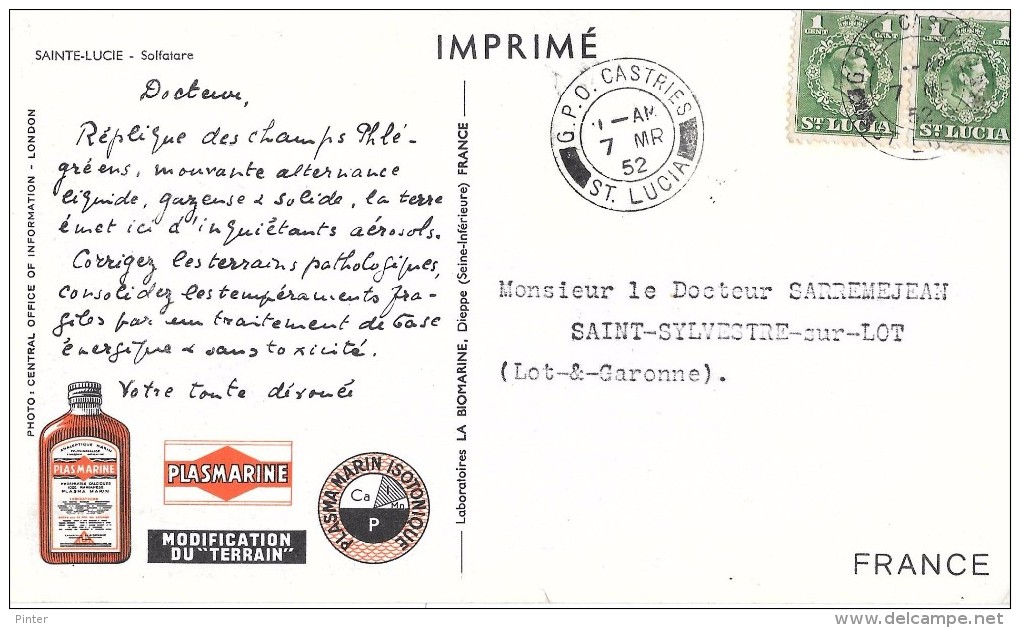 SAINTE-LUCIE - Solfatare
IMPRIMÉ
Docteur,
Réplique des champs Phlé-
gréens, mouvante alternance
liquide, gazeuse & solide, la terre
émet ici d'inquiétants aérosols.
Corrigez les terrains pathologiques,
consolidez les tempéraments fra-
giles par un traitement de base
énergique & sans toxicité.
Votre toute dévouée
PHOTO: CENTRAL OFFICE OF INFORMATION - LONDON
Laboratoires LA BIOMARINE, Dieppe (Seine-Inférieure) FRANCE
G.P.O. CASTRIES
AM
7 MR
52
ST. LUCIA
1 CENT 1
ST LUCIA
1 CENT 1
ST LUCIA
Monsieur le Docteur SARREMEJEAN
SAINT-SYLVESTRE-sur-LOT
(Lot-&-Garonne).
FRANCE
ANALEPTIQUE MARIN
PLASMARINE
PLASMA MARIN
PLASMARINE
MODIFICATION
DU "TERRAIN"
PLASMA MARIN ISOTONIQUE
Ca
I
Mn
P
Pinter
www.delcampe.net